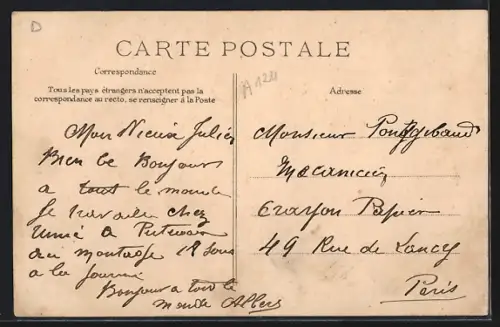 D
CARTE POSTALE
Correspondance
Tous les pays étrangers n'acceptent pas la
correspondance au recto, se renseigner à la Poste
Mon Vieux Julien
Bien le Bonjour
a tout le monde
Je travaille chez
a
du montage 18 sous
a la journé
Bonjour a tout le
monde Albert
Adresse
Monsieur Pontgibaud
Mecanicien
Crayon Papier
49 Rue de Lancy
Paris